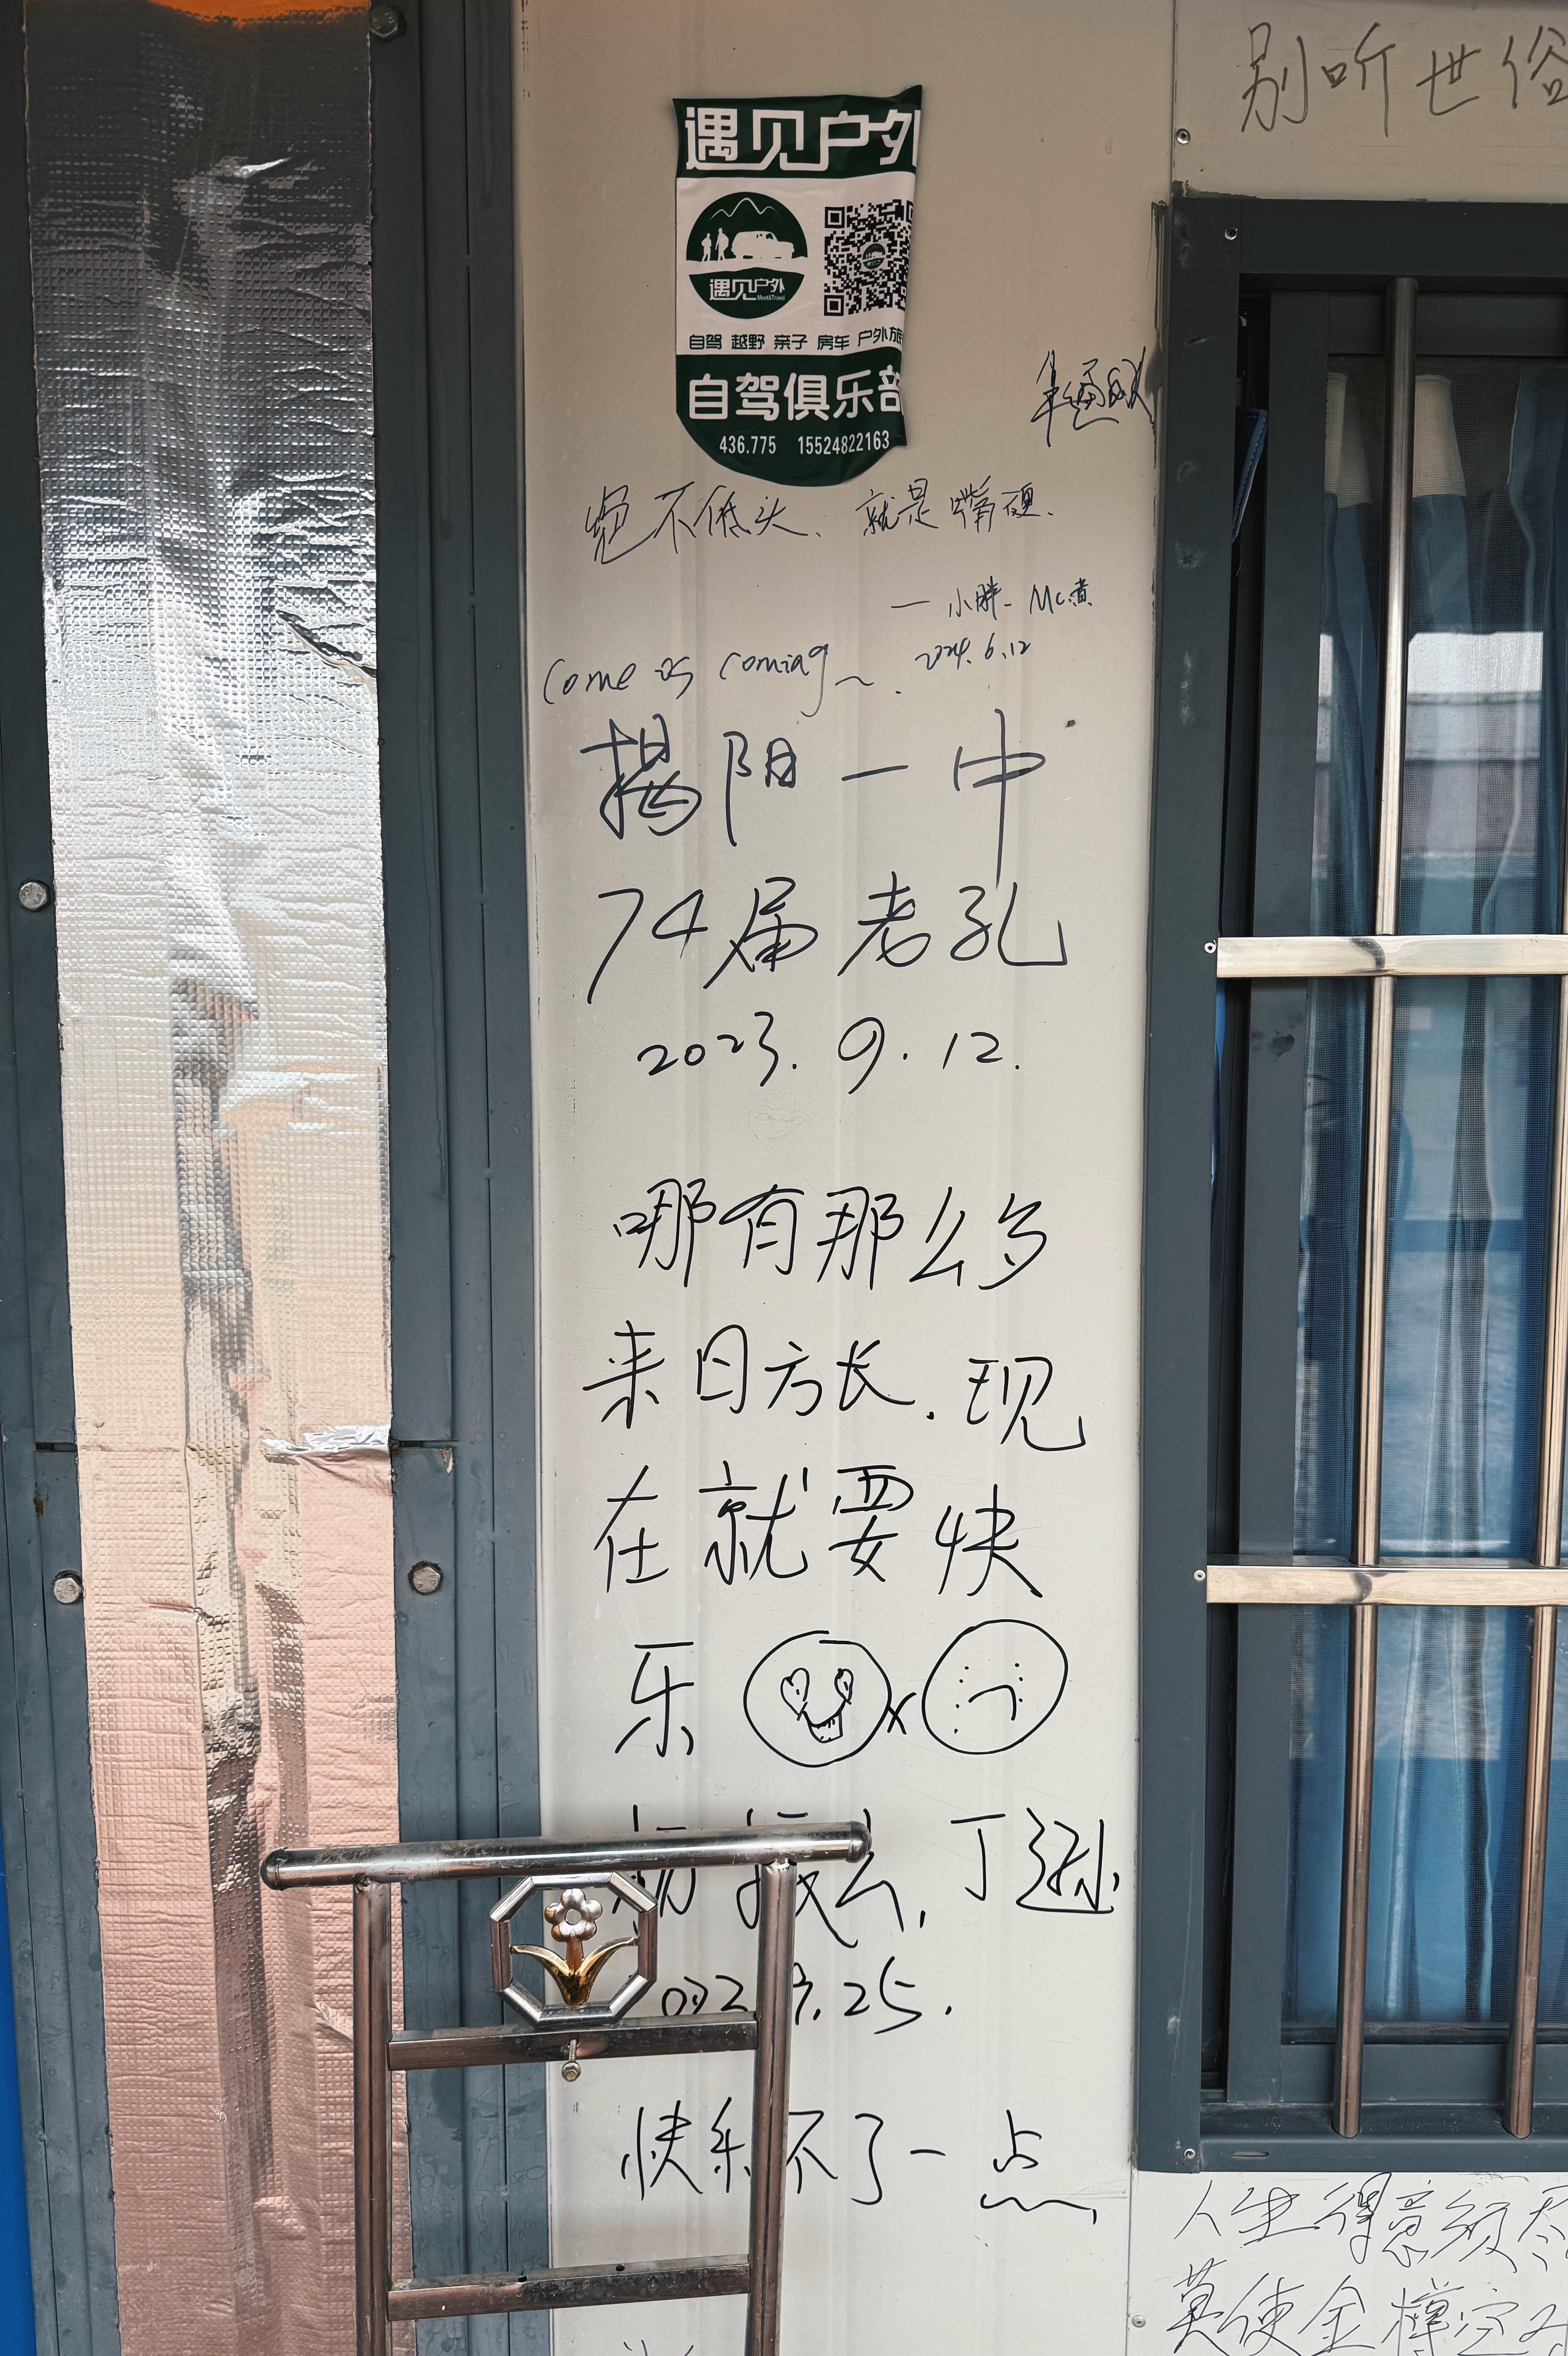 别听世俗
遇见户外
遇见户外
Meet&Travel
自驾 越野 亲子 房车 户外旅
自驾俱乐部
436.775 15524822163
绝不低头、就是嘴硬.
— 小胖- Mc黄
2024.6.12
Come is coming~.
揭阳一中
74届老孔
2023.9.12.
哪有那么多
来日方长.现
在就要快
乐
丁逊
.25.
快乐不了一点
人生得意须尽
莫使金樽空